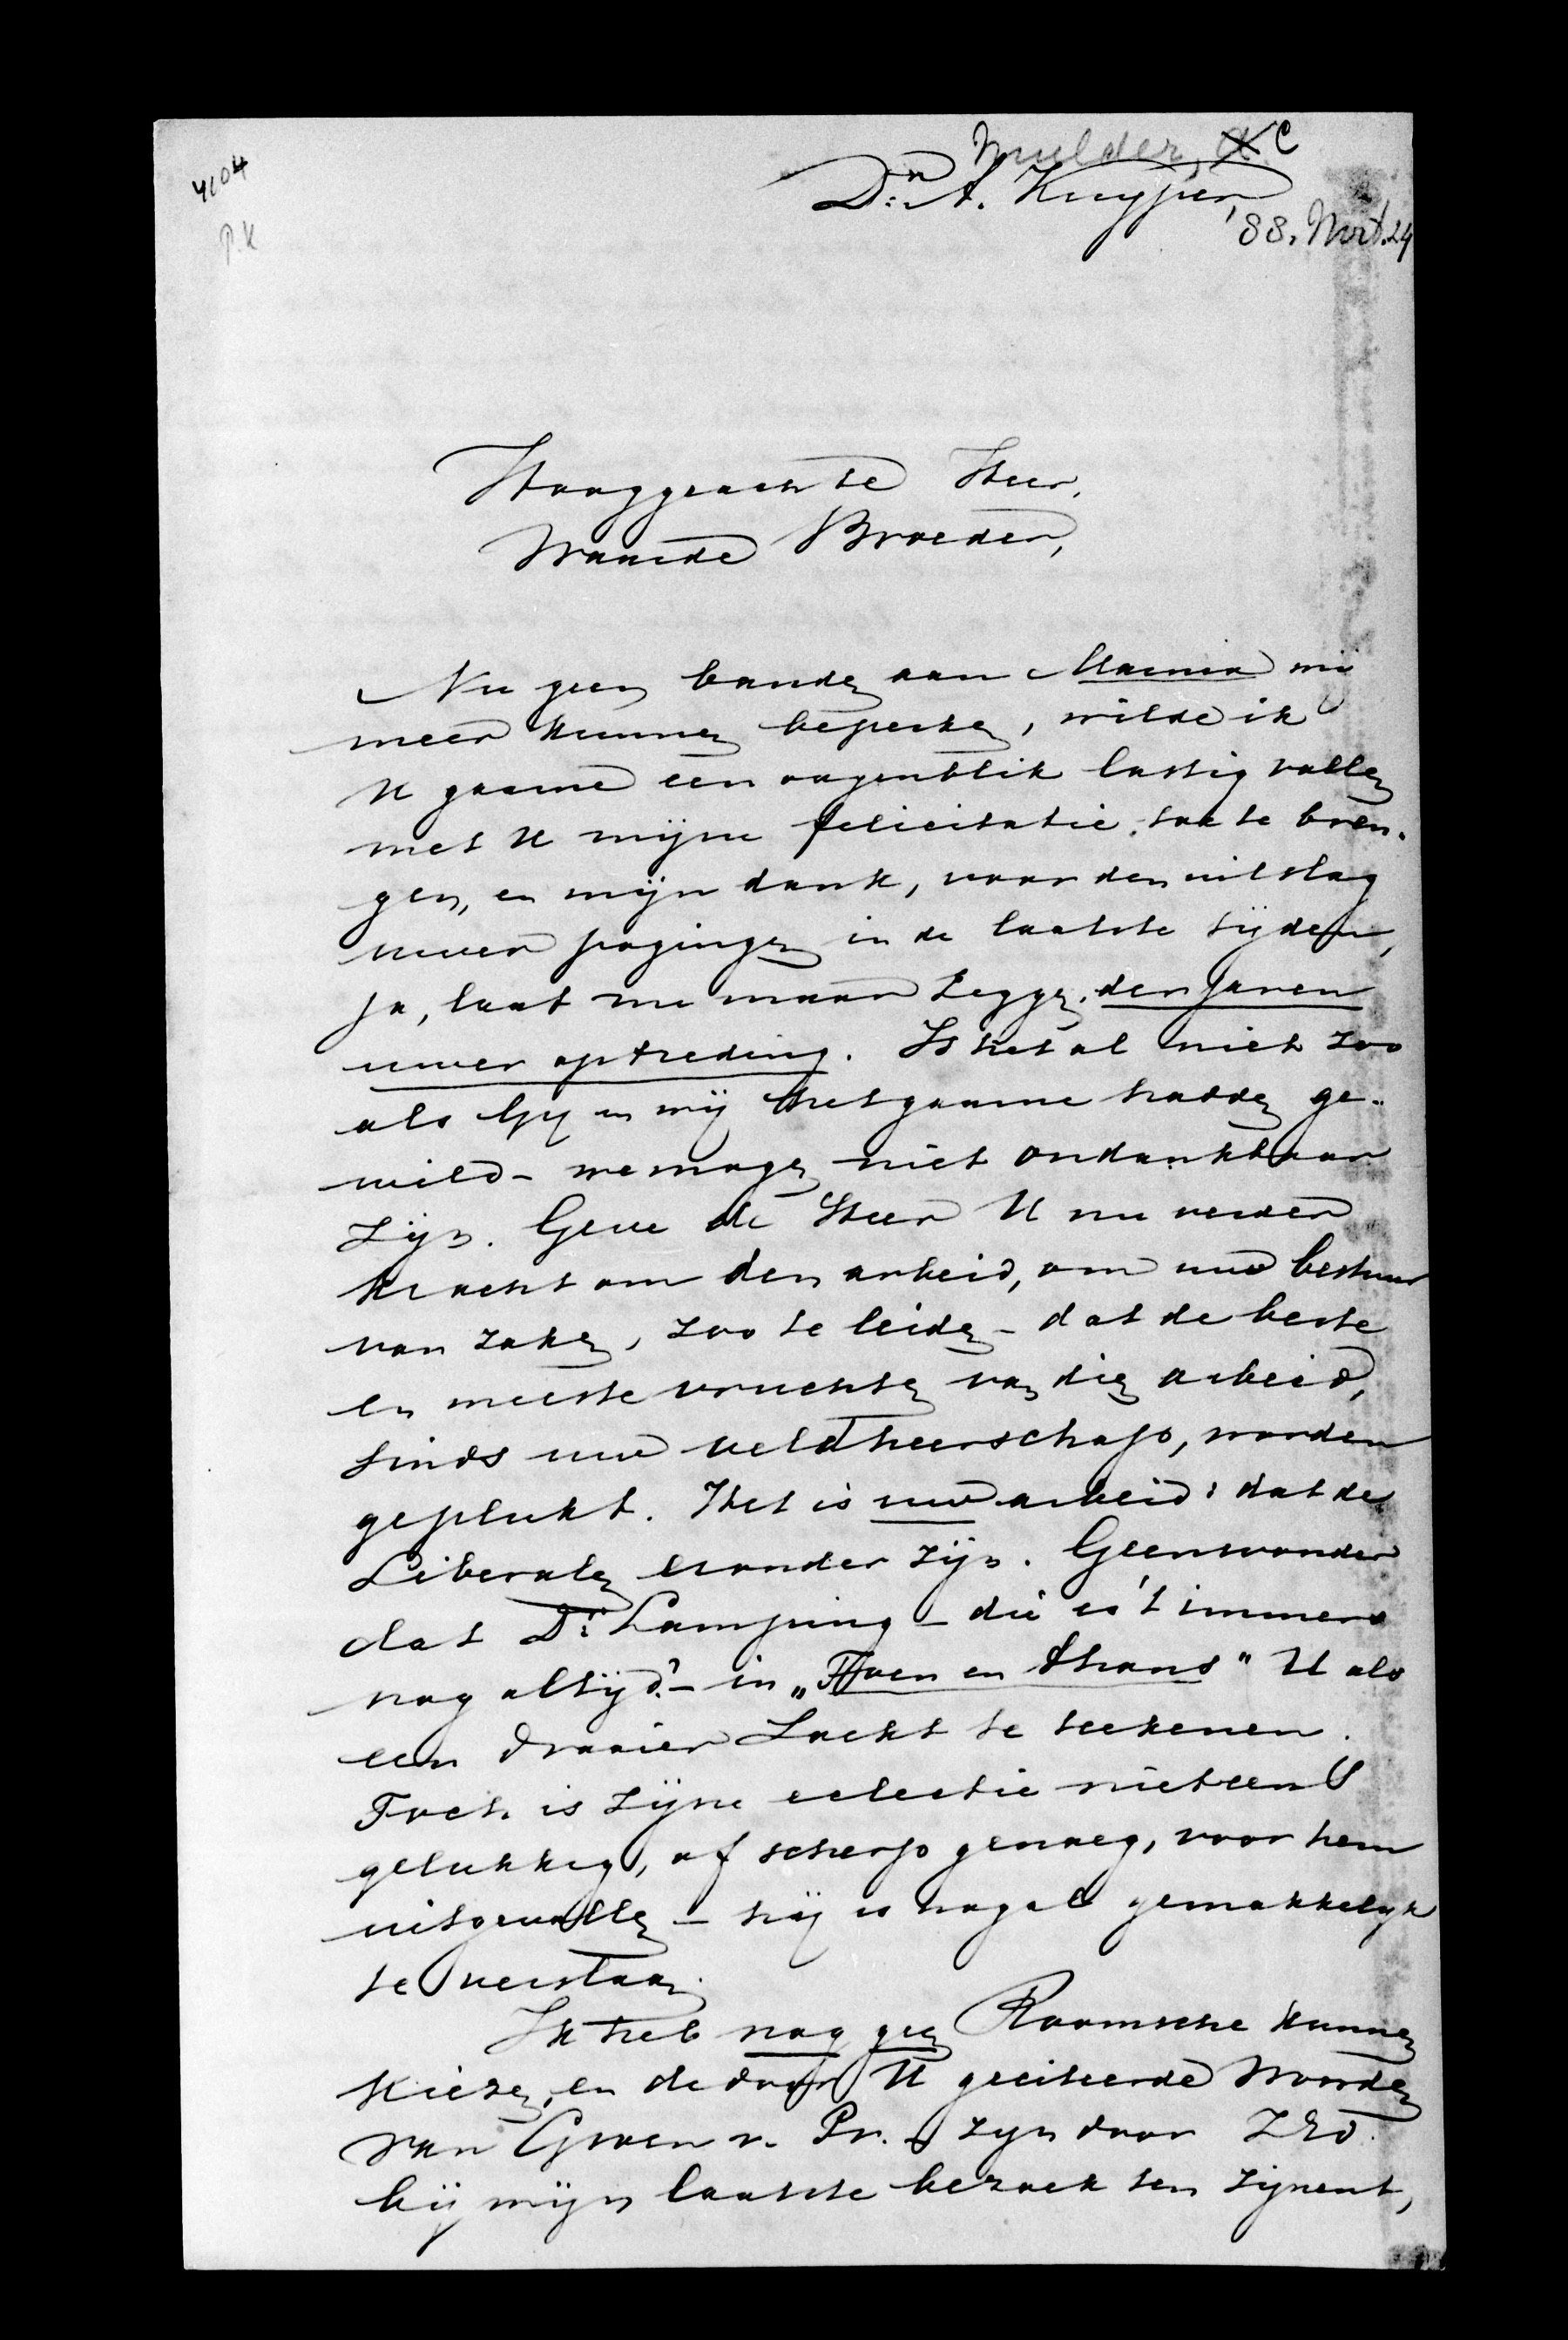 4104
P.K
Mulder, A C
Dr. A. Kuyper
'88. Mrt. 24
Hooggeachte Heer,
Waarde Broeder,
Nu geen banden aan Mamia mij
meer kunnen beperken, wilde ik
U gaarne een oogenblik lastig vallen
met U mijne felicitatie toe te bren-
gen, en mijn dank, voor den uitslag
uwer pogingen in de laatste tijden,
ja, laat me maar zeggen, der jaren
uwer optreding. Is het al niet zoo
als Gij en wij het gaarne hadden ge-
wild - we mogen niet ondankbaar
zijn. Geve de Heer U nu verder
kracht om den arbeid, om uw bestuur
van zaken, zoo te leiden - dat de beste
en meeste vruchten van dien arbeid,
sinds uw veldheerschap, worden
geplukt. Het is uw arbeid: dat de
Liberalen eronder zijn. Geen wonder
dat Dr. Lamping - die is 't immers
nog altijd? - in „Toen en thans" U als
een draaier zocht te teekenen.
Toch is zijne eclectie niet eens
gelukkig, of scherp genoeg, voor hem
uitgevallen - hij is nogal gemakkelijk
te verstaan.
Ik heb nog geen Roomsche kunnen
kiezen, en de door U geciteerde woorden
van Groen v. Pr. zijn door ZEd.
bij mijn laatste bezoek ten zijnent,